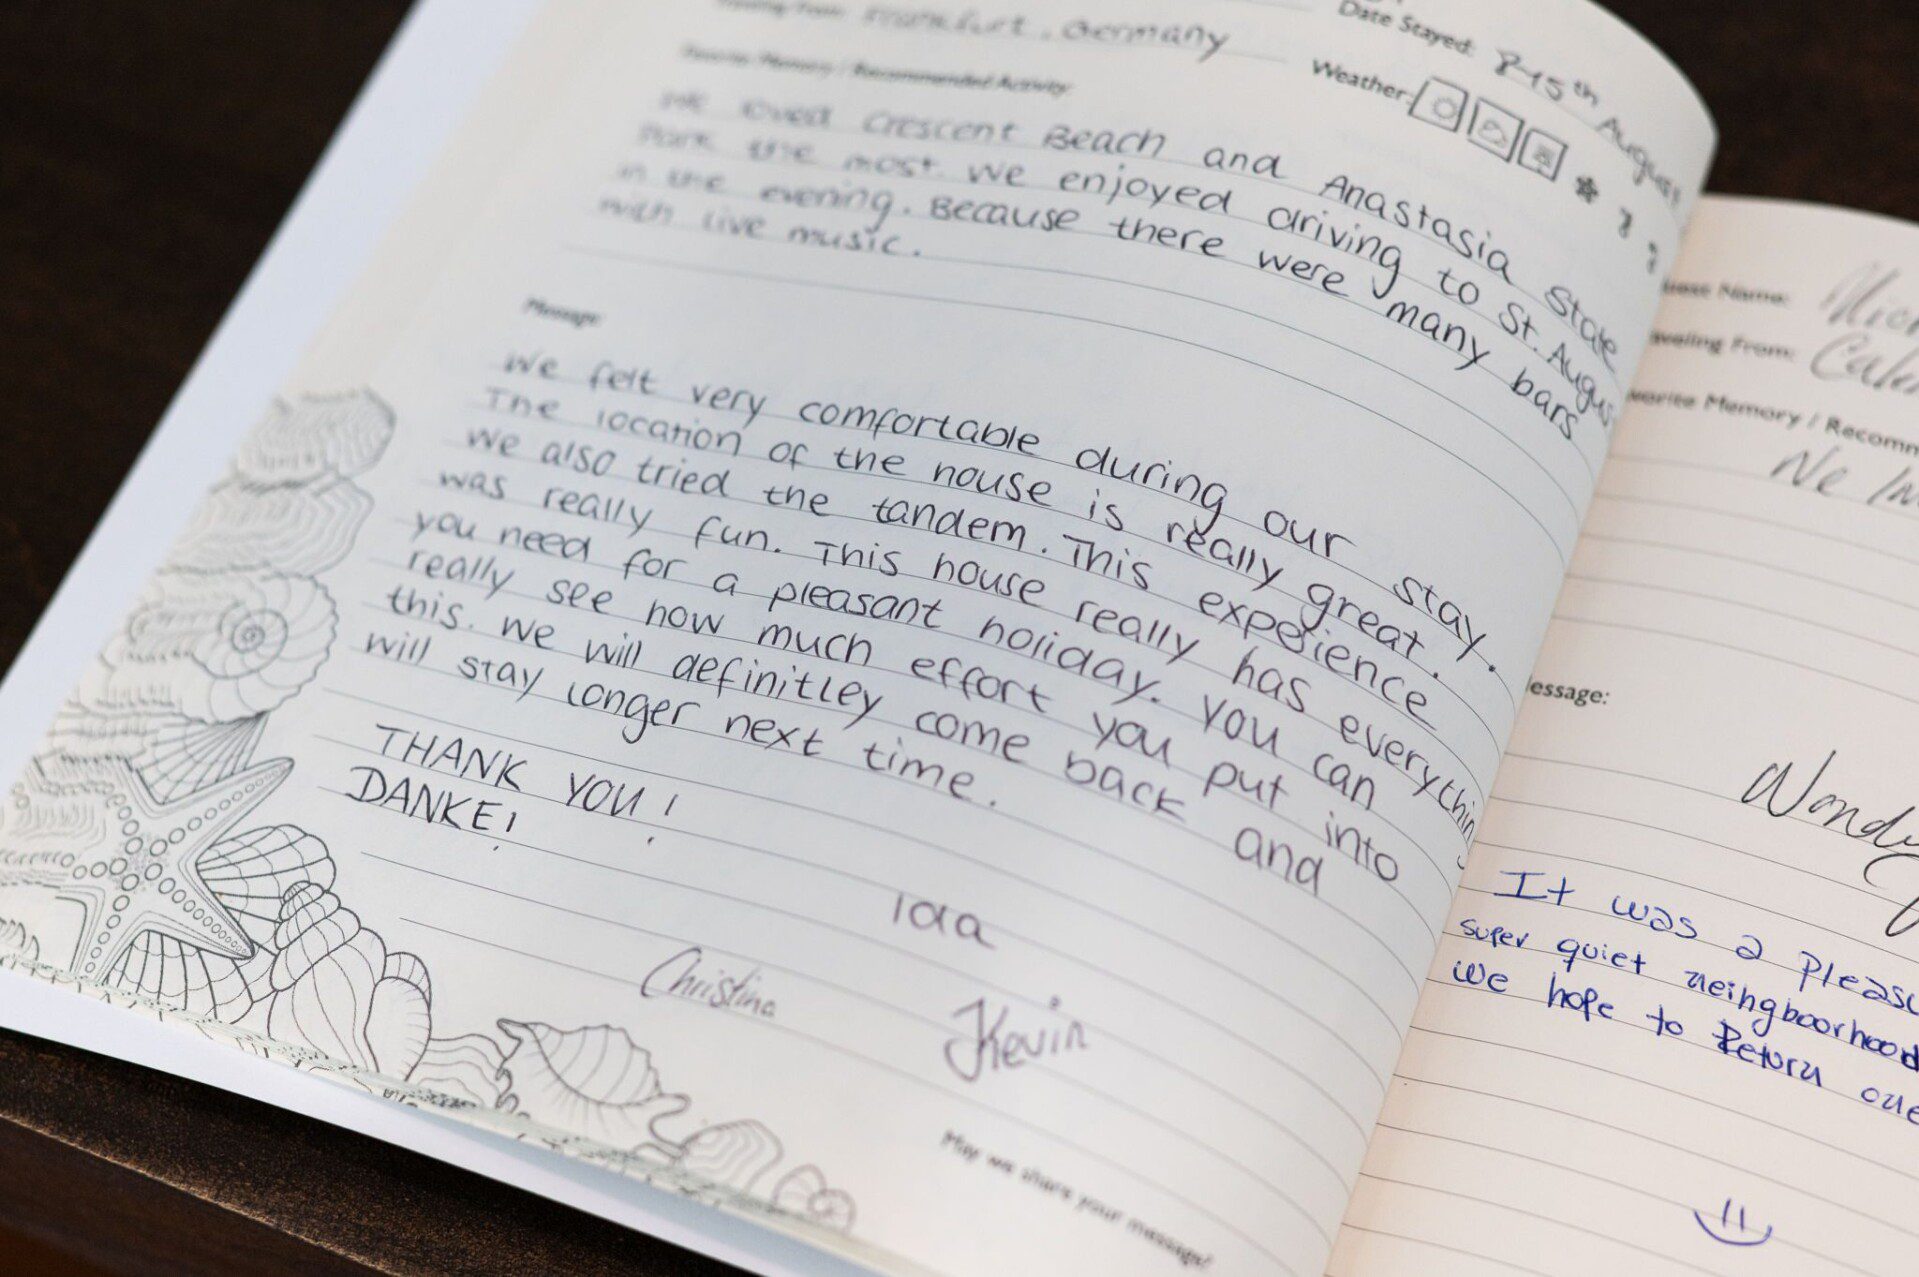 Traveling From: Frankfurt, Germany
Date Stayed: 8-15th August
Weather:
Favorite Memory / Recommended Activity
We loved Crescent Beach and Anastasia State
Park the most. We enjoyed driving to St. Augus
in the evening. Because there were many bars
with live music.
Message:
We felt very comfortable during our stay.
The location of the house is really great.
We also tried the tandem. This expeience
was really fun. This house really has everything
you need for a pleasant holiday. You can
really see how much effort you put into
this. We will definitley come back and
will stay longer next time.
THANK YOU!
DANKE!
Ida
Christina
Kevin
May we share your message?
Guest Name:
Traveling From:
Favorite Memory / Recomm
We
Message:
It was a pleasu
super quiet neihgboorhood
we hope to Return one